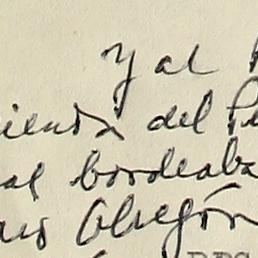 y al
ienda del Pe
al bordeaba
Obregón